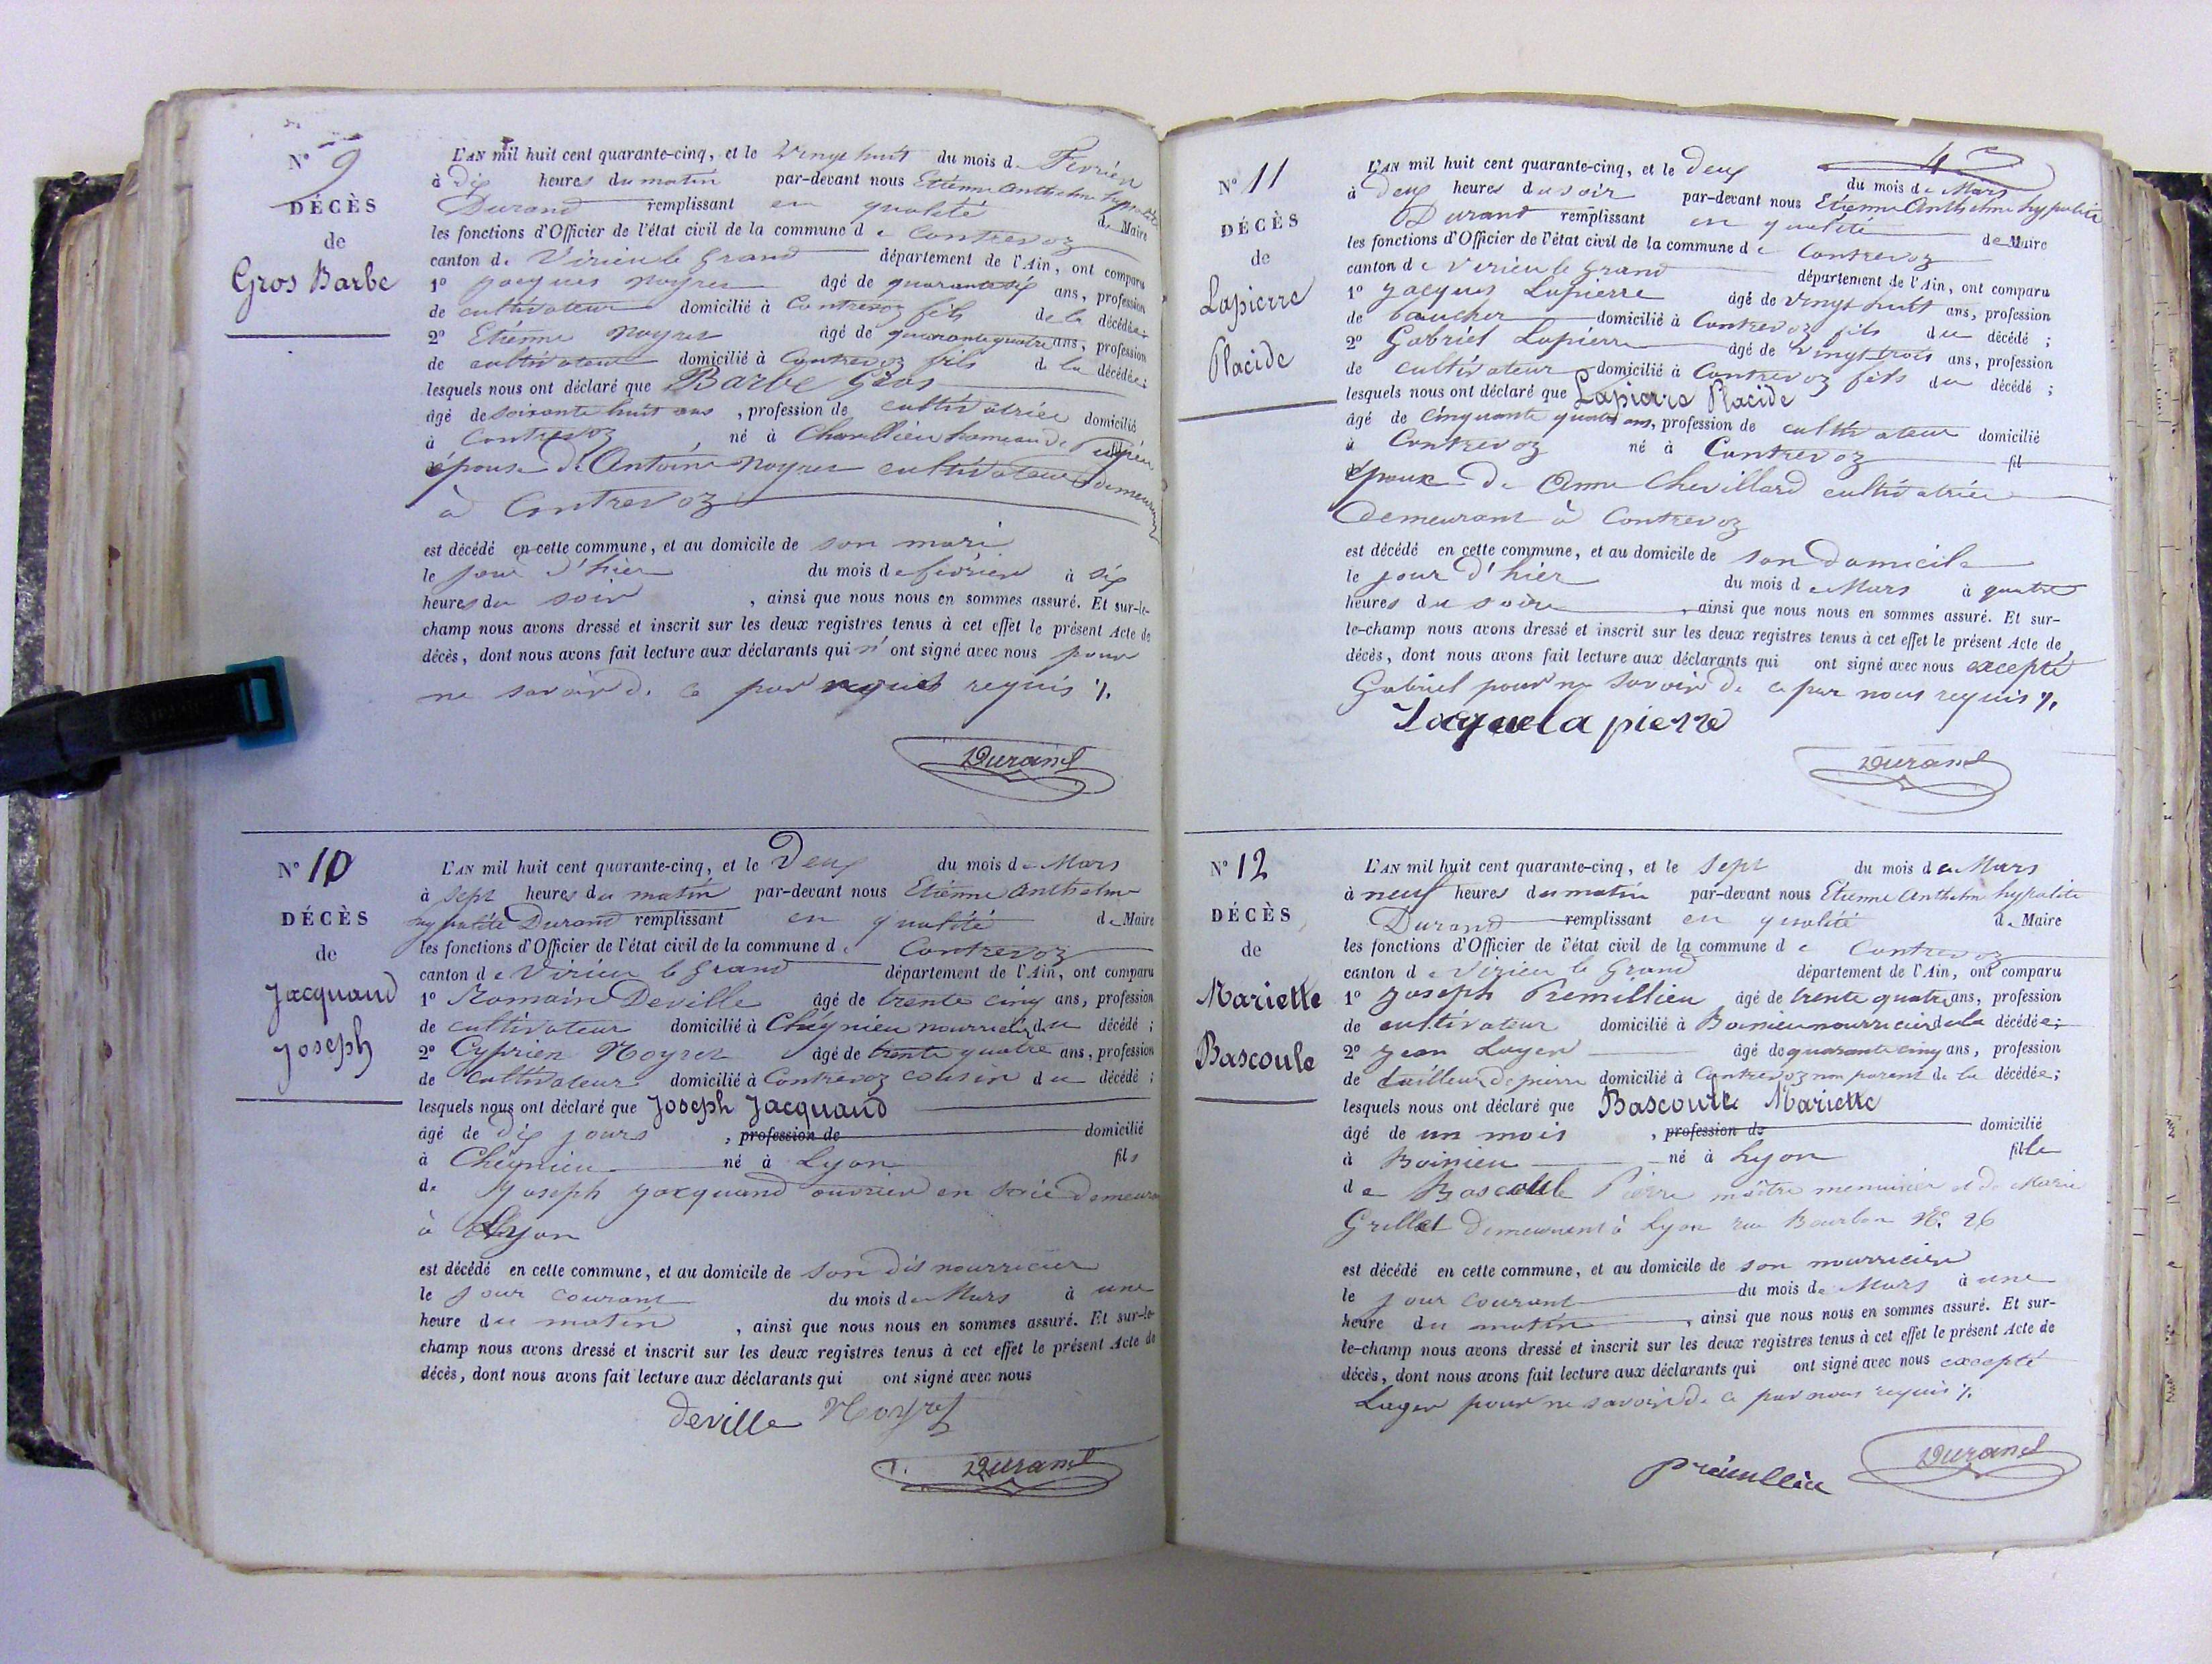 N° 9
DÉCÈS
de
Gros Barbe
L'AN mil huit cent quarante-cinq, et le Vingt huit du mois de Février
à dix heures du matin par-devant nous Etienne Anthelme hypolite
Durand remplissant en qualité de Maire
les fonctions d'Officier de l'état civil de la commune de Contrevoz
canton de Virieu le Grand département de l'Ain, ont comparu
1° Jacques Noyret âgé de quarante six ans, profession
de cultivateur domicilié à Contrevoz fils de la décédée;
2° Etienne Noyret âgé de quarante quatre ans, profession
de cultivateur domicilié à Contrevoz fils de la décédée;
lesquels nous ont déclaré que Barbe Gros
âgé de soixante huit ans, profession de cultivatrice domicilié
à Contrevoz, né à hameau de Pugieu
épouse de Antoine Noyret cultivateur demeurant
à Contrevoz
est décédé en cette commune, et au domicile de son mari
le jour d'hier du mois de février à six
heures du soir, ainsi que nous nous en sommes assuré. Et sur-le-
champ nous avons dressé et inscrit sur les deux registres tenus à cet effet le présent Acte de
décès, dont nous avons fait lecture aux déclarants qui n'ont signé avec nous pour
ne savoir de ce par requis %.
Durand
N° 10
DÉCÈS
de
Jacquand
Joseph
L'AN mil huit cent quarante-cinq, et le Deux du mois de Mars
à sept heures du matin par-devant nous Etienne Anthelme
hypolite Durand remplissant en qualité de Maire
les fonctions d'Officier de l'état civil de la commune de Contrevoz
canton de Virieu le Grand département de l'Ain, ont comparu
1° Romain Deville âgé de trente cinq ans, profession
de cultivateur domicilié à Cheignieu nourricier du décédé;
2° Cyprien Noyret âgé de trente quatre ans, profession
de cultivateur domicilié à Contrevoz cousin du décédé;
lesquels nous ont déclaré que Joseph Jacquand
âgé de dix jours, profession de domicilié
à Cheignieu né à Lyon fils
de Joseph Jacquand ouvrier en soie demeurant
à Lyon
est décédé en cette commune, et au domicile de son dis nourricier
le jour courant du mois de Mars à une
heure du matin, ainsi que nous nous en sommes assuré. Et sur-le-
champ nous avons dressé et inscrit sur les deux registres tenus à cet effet le présent Acte de
décès, dont nous avons fait lecture aux déclarants qui ont signé avec nous
deville Noyret
Durand
N° 11
DÉCÈS
de
Lapierre
Placide
L'AN mil huit cent quarante-cinq, et le deux du mois de Mars
à deux heures du soir par-devant nous Etienne Anthelme hypolite
Durand remplissant en qualité de Maire
les fonctions d'Officier de l'état civil de la commune de Contrevoz
canton de Virieu le Grand département de l'Ain, ont comparu
1° Jacques Lapierre âgé de vingt huit ans, profession
de boucher domicilié à Contrevoz fils du décédé;
2° Gabriel Lapierre âgé de vingt trois ans, profession
de cultivateur domicilié à Contrevoz fils du décédé;
lesquels nous ont déclaré que Lapierre Placide
âgé de cinquante quatre ans, profession de cultivateur domicilié
à Contrevoz né à Contrevoz fil
époux de Anne Chevillard cultivatrice
demeurant à Contrevoz
est décédé en cette commune, et au domicile de son domicile
le jour d'hier du mois de Mars à quatre
heures du soir, ainsi que nous nous en sommes assuré. Et sur-
le-champ nous avons dressé et inscrit sur les deux registres tenus à cet effet le présent Acte de
décès, dont nous avons fait lecture aux déclarants qui ont signé avec nous excepté
Gabriel pour ne savoir de ce par nous requis %.
Durand
N° 12
DÉCÈS
de
Mariette
Bascoule
L'AN mil huit cent quarante-cinq, et le sept du mois de Mars
à neuf heures du matin par-devant nous Etienne Anthelme hypolite
Durand remplissant en qualité de Maire
les fonctions d'Officier de l'état civil de la commune de Contrevoz
canton de Virieu le Grand département de l'Ain, ont comparu
1° Joseph Premillieu âgé de trente quatre ans, profession
de cultivateur domicilié à Boinieu nourricier de la décédée;
2° Jean Luger âgé de quarante cinq ans, profession
de tailleur de pierre domicilié à Contrevoz non parent de la décédée;
lesquels nous ont déclaré que Bascoule Mariette
âgé de un mois, profession de domicilié
à Boinieu né à Lyon fille
de Bascoule Pierre maître menuisier et de Marie
Grillet demeurant à Lyon rue Bourbon N° 26
est décédé en cette commune, et au domicile de son nourricier
le jour courant du mois de Mars à une
heure du matin, ainsi que nous nous en sommes assuré. Et sur-
le-champ nous avons dressé et inscrit sur les deux registres tenus à cet effet le présent Acte de
décès, dont nous avons fait lecture aux déclarants qui ont signé avec nous excepté
Luger pour ne savoir de ce par nous requis %.
Durand